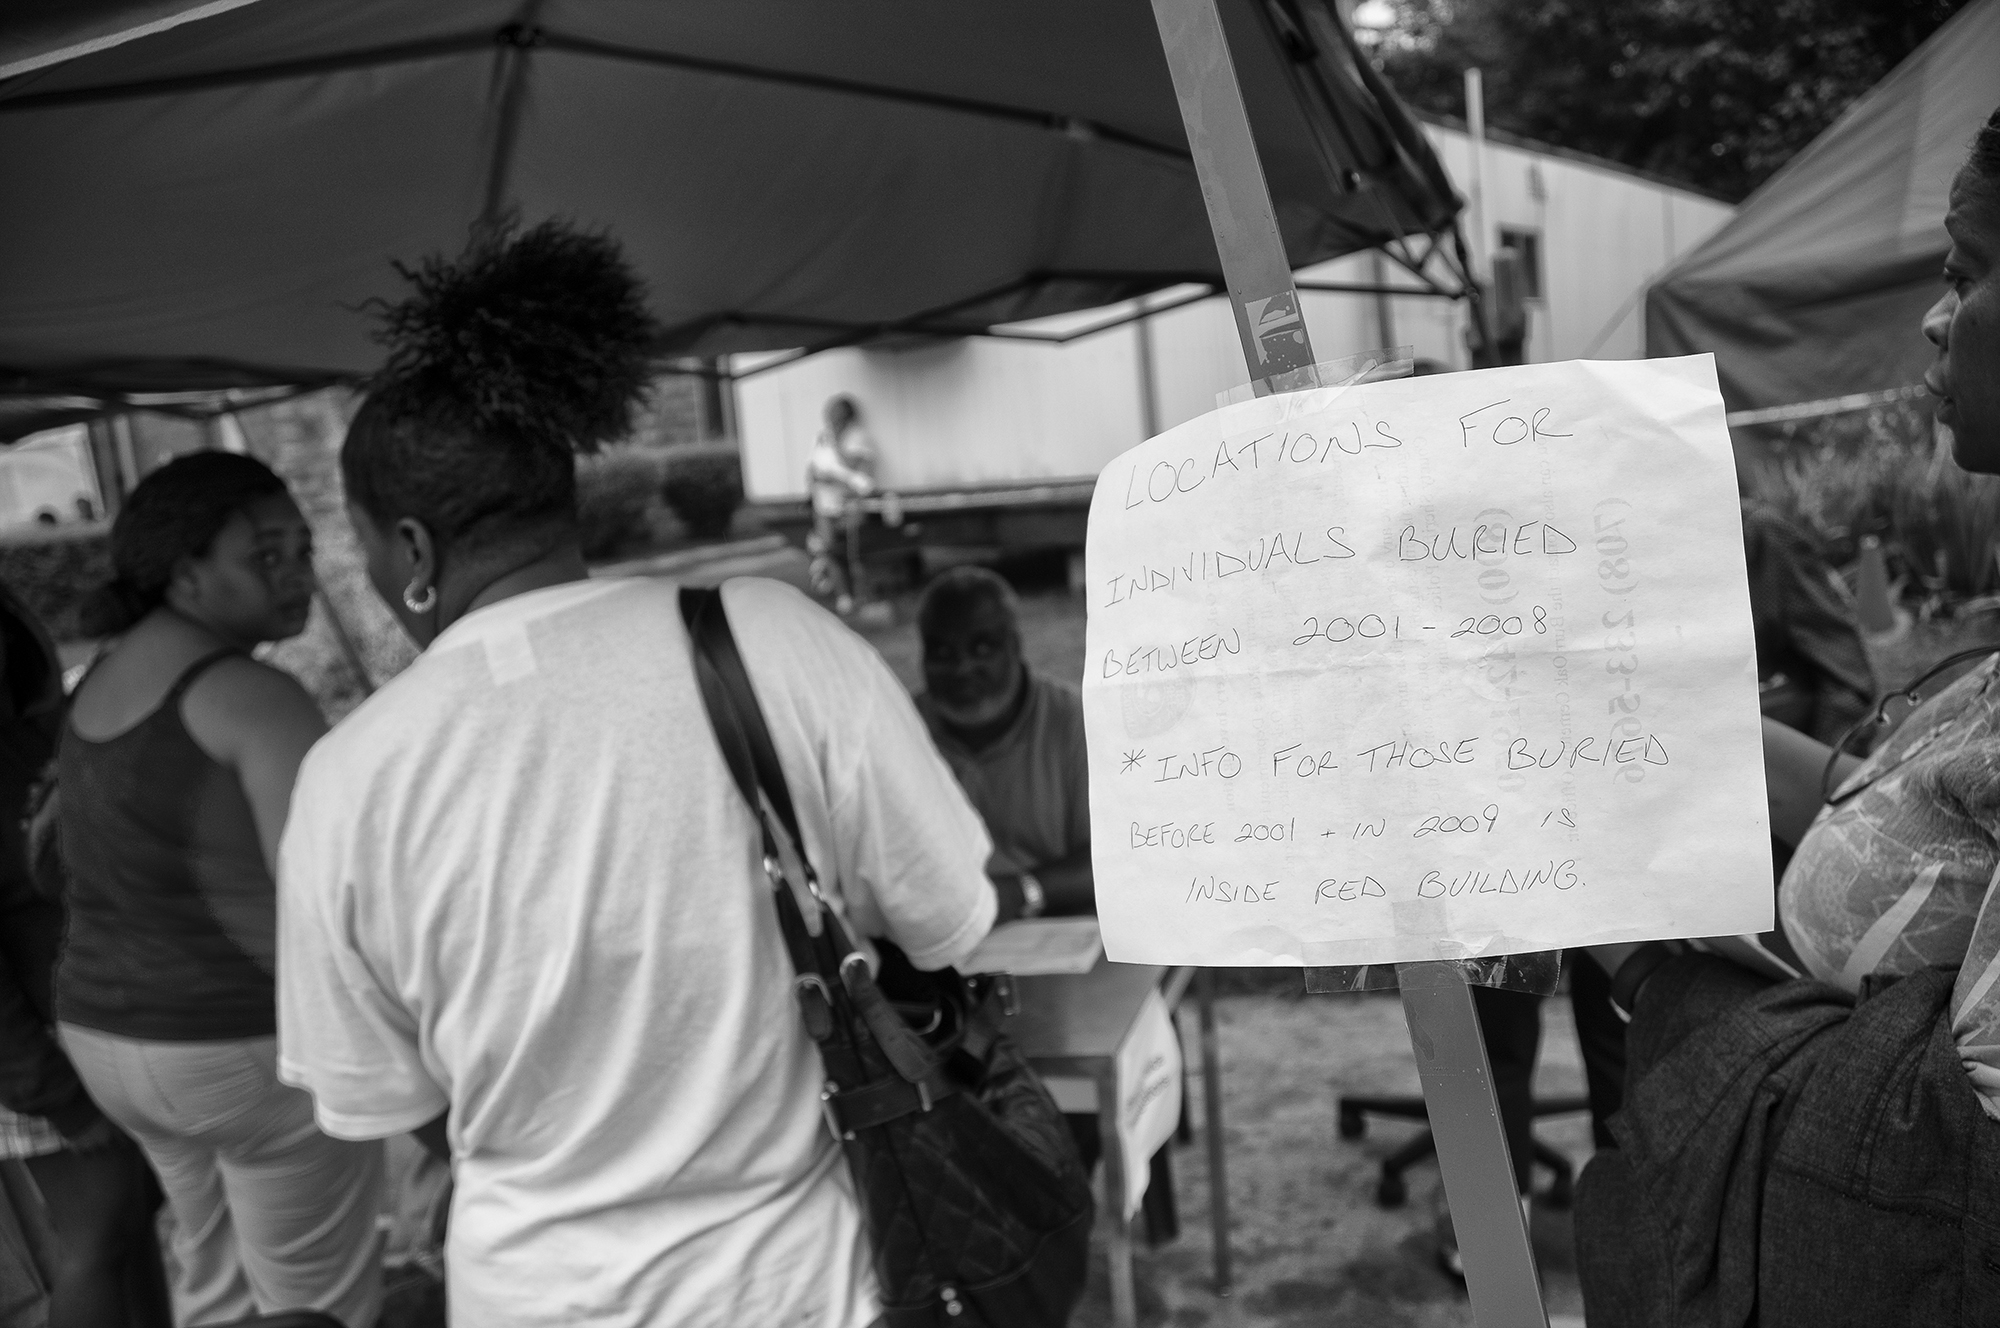 LOCATIONS FOR
INDIVIDUALS BURIED
BETWEEN 2001-2008
* INFO FOR THOSE BURIED
BEFORE 2001 + IN 2009 IS
INSIDE RED BUILDING.